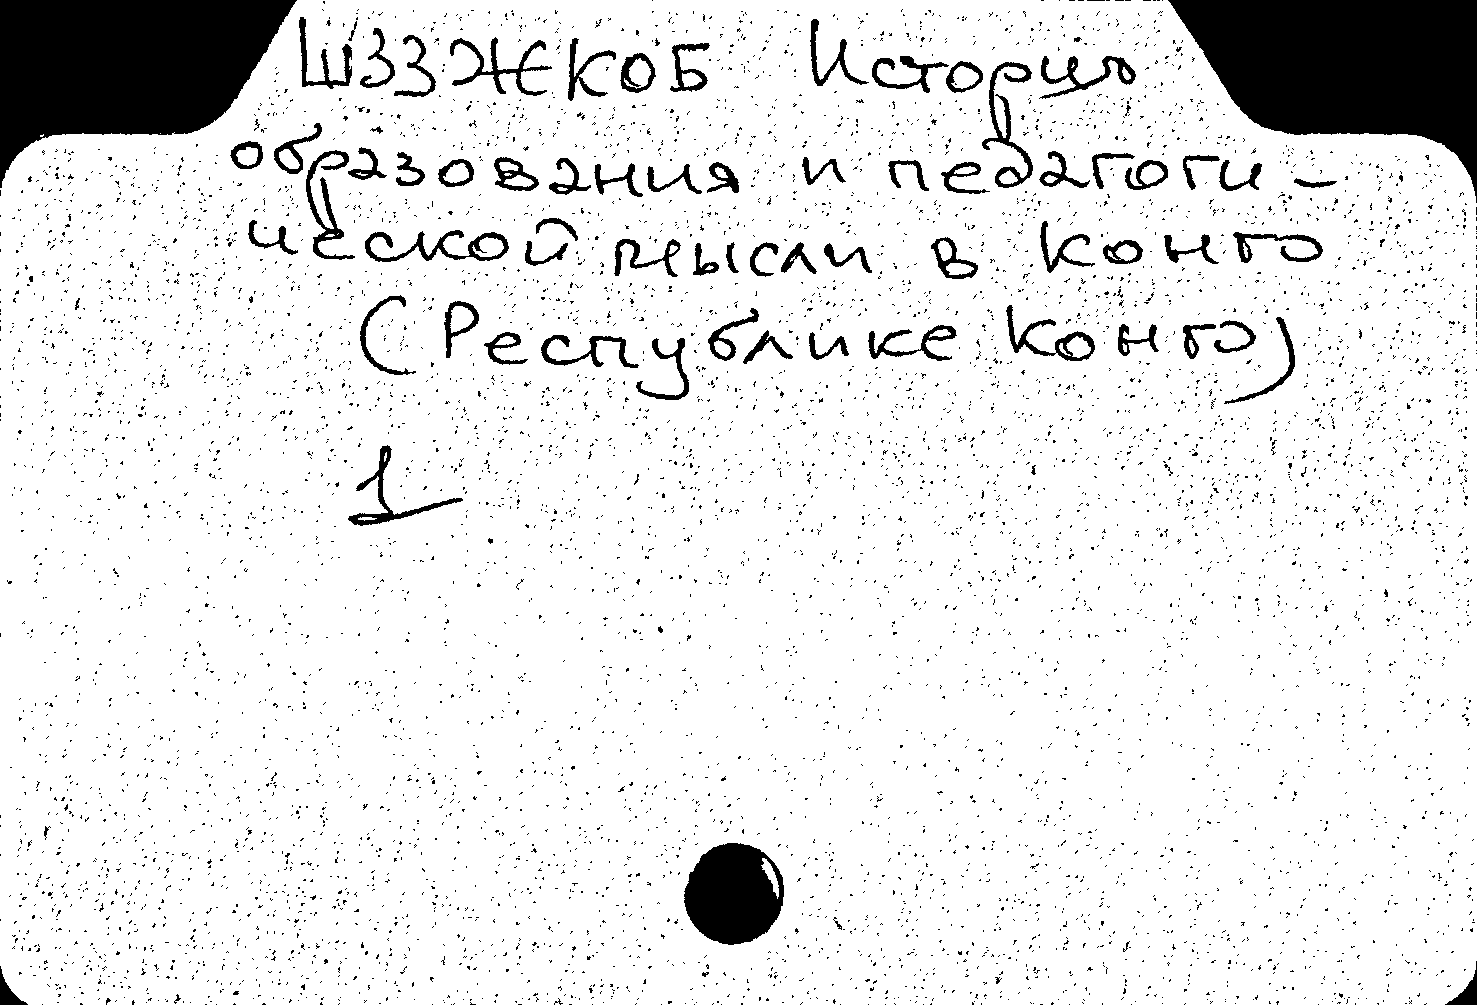 Ш33ЖЕКОБ История
образования и педагоги-
ческой мысли в Конго
(Республике Конго)
1